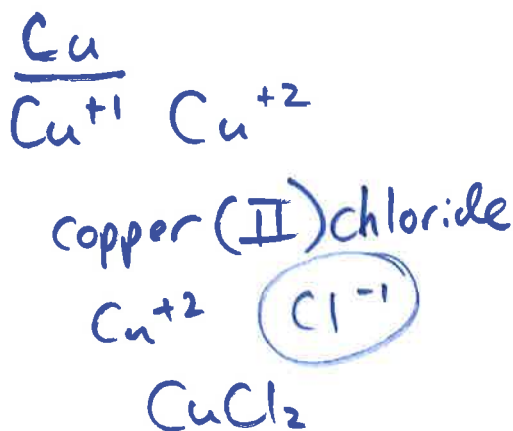 Cu
Cu⁺¹ Cu⁺²
copper (II) chloride
Cu⁺² Cl⁻¹
CuCl₂